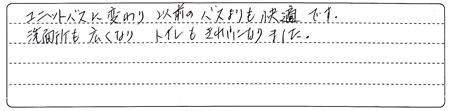 ユニットバスに変わり 以前のバスよりも快適です。
洗面所も広くなり トイレもきれいになりました。